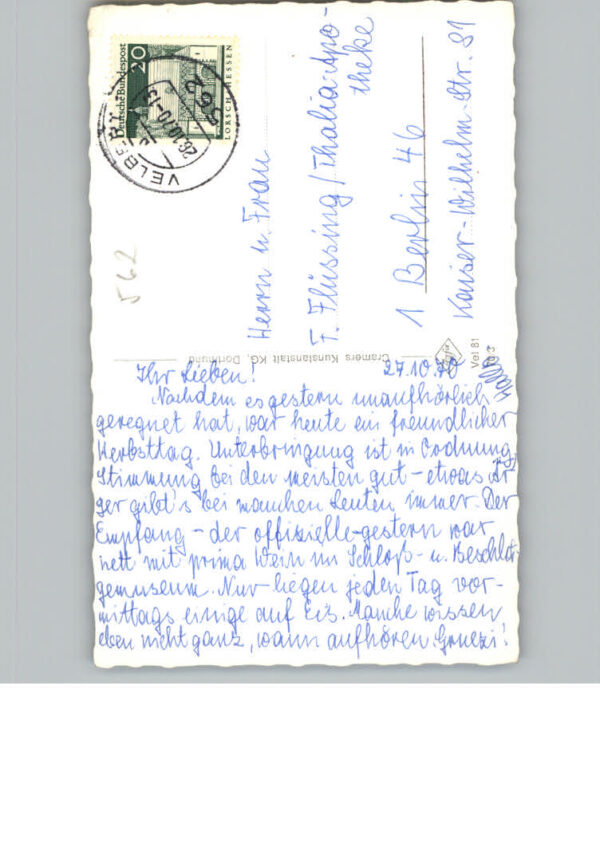 Ihr Lieben! 27.10.70
Nachdem es gestern unaufhörlich
geregnet hat, war heute ein freundlicher
Herbsttag. Unterbringung ist in Ordnung,
Stimmung bei den meisten gut – etwas Är
ger gibt's bei manchen Leuten immer. Der
Empfang – der offizielle – gestern war
nett mit prima Wein im Schloß- u. Beschlä-
gemuseum. Nur liegen jeden Tag vor-
mittags einige auf Eis. Manche wissen
eben nicht ganz, wann aufhören. Gruezi!
Herrn u. Frau
F. Flüssing / Thalia-Apo-
theke
1 Berlin 46
Kaiser-Wilhelm-Str. 81
Cramers Kunstanstalt KG, Dortmund
Vel 81
562
Deutsche Bundespost
20
LORSCH/HESSEN
562
VELBERT 1